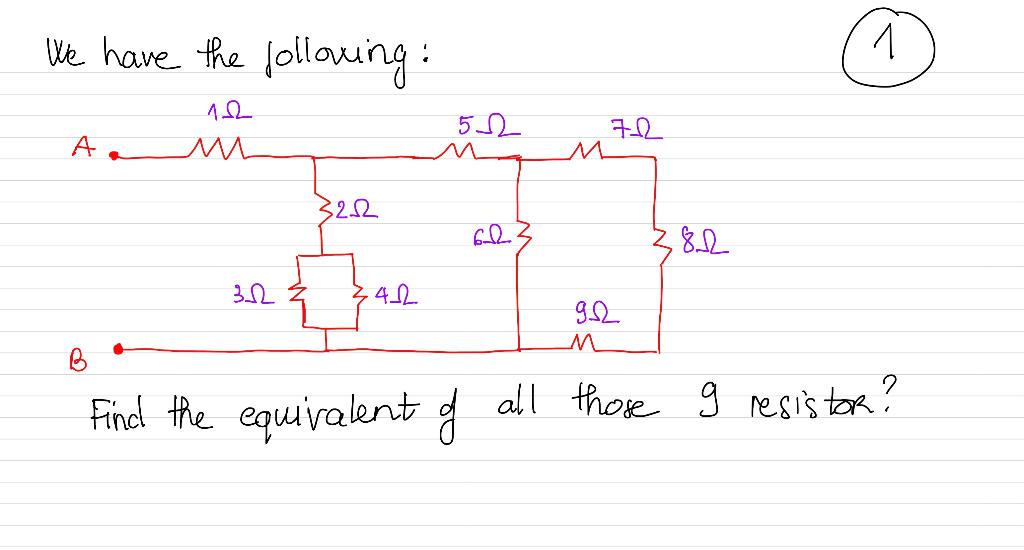 We have the following:
1
1Ω
5Ω
7Ω
A
2Ω
6Ω
8Ω
3Ω
4Ω
9Ω
B
Find the equivalent of all those 9 resistor?